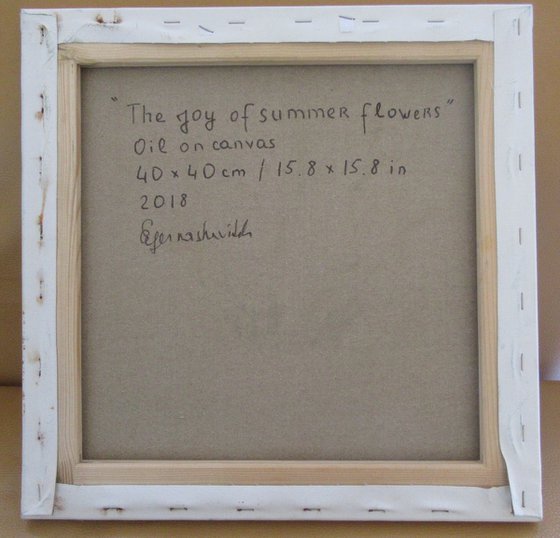 "The joy of summer flowers"
Oil on canvas
40 x 40 cm / 15.8 x 15.8 in
2018